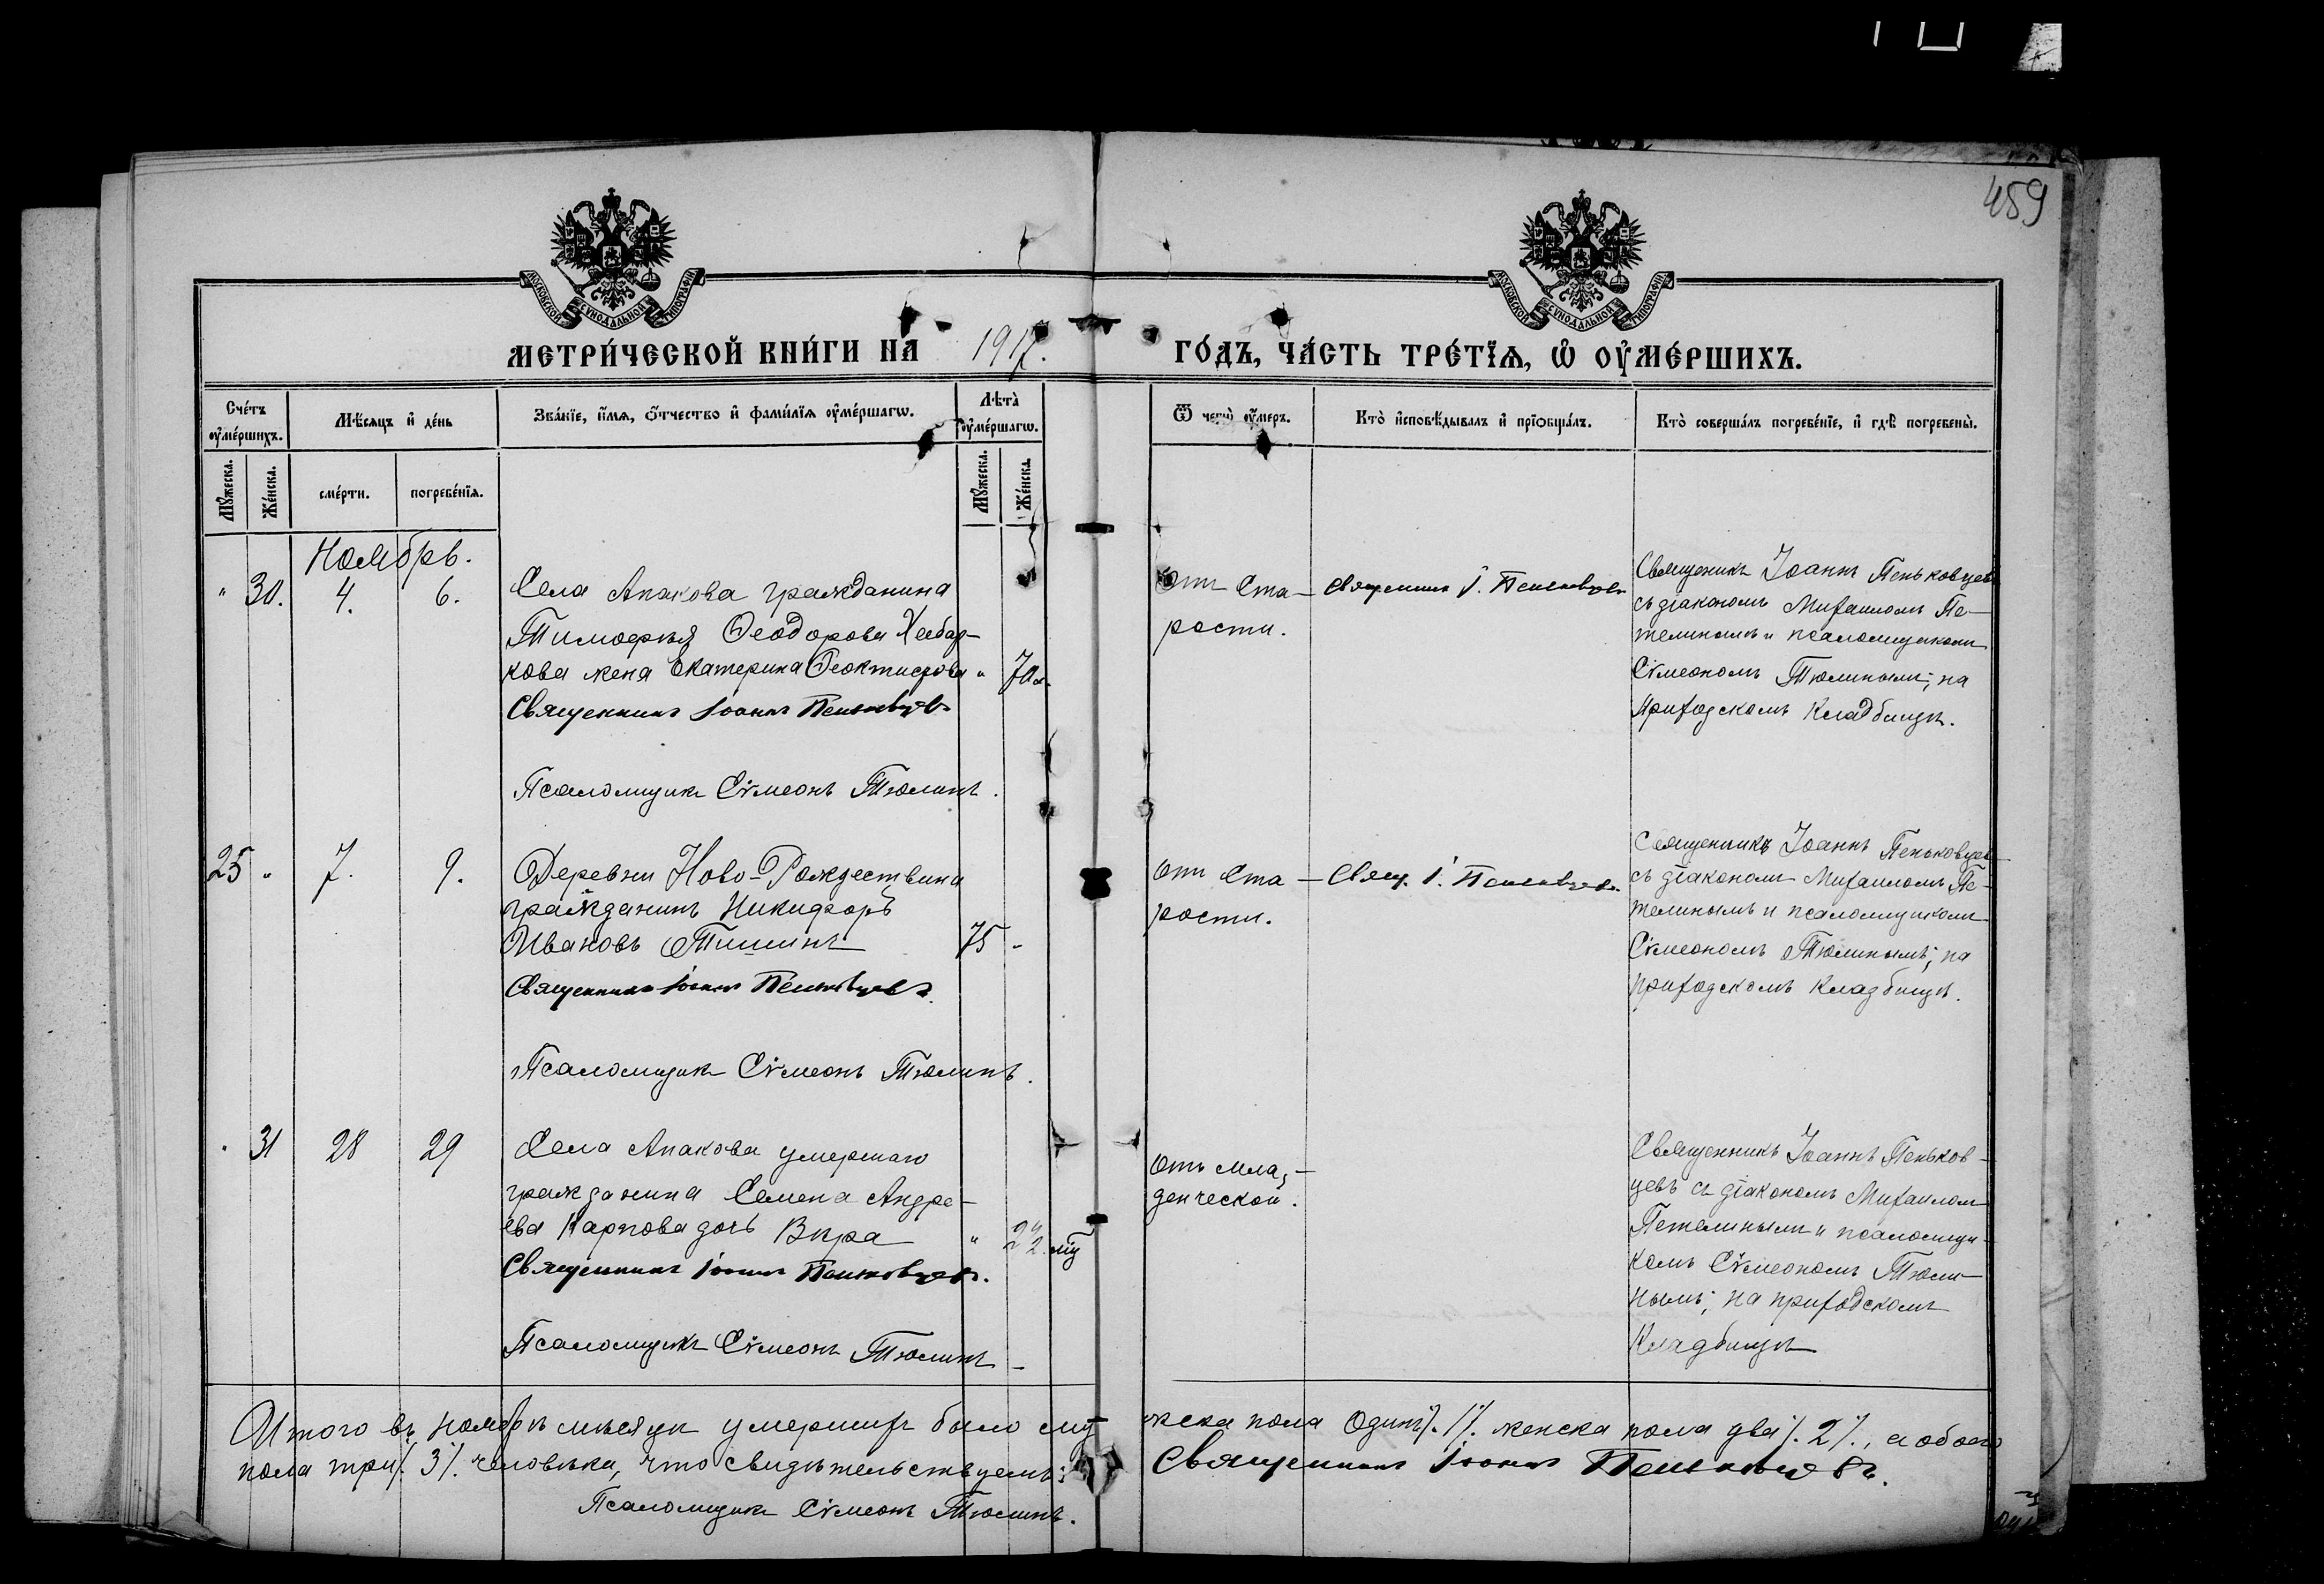 459
МОСКОВСКОЙ СѴНОДАЛЬНОЙ ТИПОГРАФІИ
МОСКОВСКОЙ СѴНОДАЛЬНОЙ ТИПОГРАФІИ
МЕТРИ́ЧЕСКОЙ КНИ́ГИ НА 1917. ГО́ДЪ, ЧА́СТЬ ТРЕ́ТЇѦ, Ѡ҆ ОУ҆МЕ́РШИХЪ.
Сче́тъ оу҆ме́ршихъ.
Мѣ́сяцъ и҆ де́нь
Зва́нїе, и҆́мя, ѻ҆́тчество и҆ фами́лїя оу҆ме́ршагѡ.
Лѣта̀ оу҆ме́ршагѡ.
Ѿ чегѡ̀ оу҆́меръ.
Кто̀ и҆сповѣ́дывалъ и҆ прїѻбща́лъ.
Кто̀ соверша́лъ погребе́нїе, и҆ гдѣ̀ погребены̀.
Мꙋ́жеска.
Же́нска.
сме́рти.
погребе́нїя.
Мꙋ́жеска.
Же́нска.
Ноябрь.
" 30. 4. 6.
Села Апакова гражданина
Тимоѳея Ѳеодорова Хлебар-
кова жена Екатерина Ѳеоктистова " 70.
Священникъ Іоаннъ Пеньковцевъ
Псаломщикъ Сѵмеонъ Тюлинъ.
отъ ста-
рости.
Священникъ І. Пеньковцевъ
Священникъ Іоаннъ Пеньковцевъ
съ діакономъ Михаиломъ Пе-
телинымъ и псаломщикомъ
Сѵмеономъ Тюлинымъ; на
приходскомъ кладбищѣ.
25 " 7. 9.
Деревни Ново-Рождествина
гражданинъ Никифоръ
Ивановъ Тишинъ 75 -
Священникъ Іоаннъ Пеньковцевъ.
Псаломщикъ Сѵмеонъ Тюлинъ.
отъ ста-
рости.
Свящ. І. Пеньковцевъ.
Священникъ Іоаннъ Пеньковцевъ
съ діакономъ Михаиломъ Пе-
телинымъ и псаломщикомъ
Сѵмеономъ Тюлинымъ; на
приходскомъ кладбищѣ.
" 31 28 29
Села Апакова умершаго
гражданина Семена Андре-
ева Карпова дочь Вѣра "
Священникъ Іоаннъ Пеньковцевъ.
Псаломщикъ Сѵмеонъ Тюлинъ
отъ мла-
денческой.
Священникъ Іоаннъ Пеньков-
цевъ съ діакономъ Михаиломъ
Петелинымъ и псаломщи-
комъ Сѵмеономъ Тюли-
нымъ; на приходскомъ
кладбищѣ
Итого въ ноябрѣ мѣсяцѣ умершихъ было му жеска пола одинъ /.1/. женска пола два /.2/., а обоего
пола три /.3/. человѣка, что свидѣтельствуемъ: Священникъ Іоаннъ Пеньковцевъ.
Псаломщикъ Сѵмеонъ Тюлинъ.